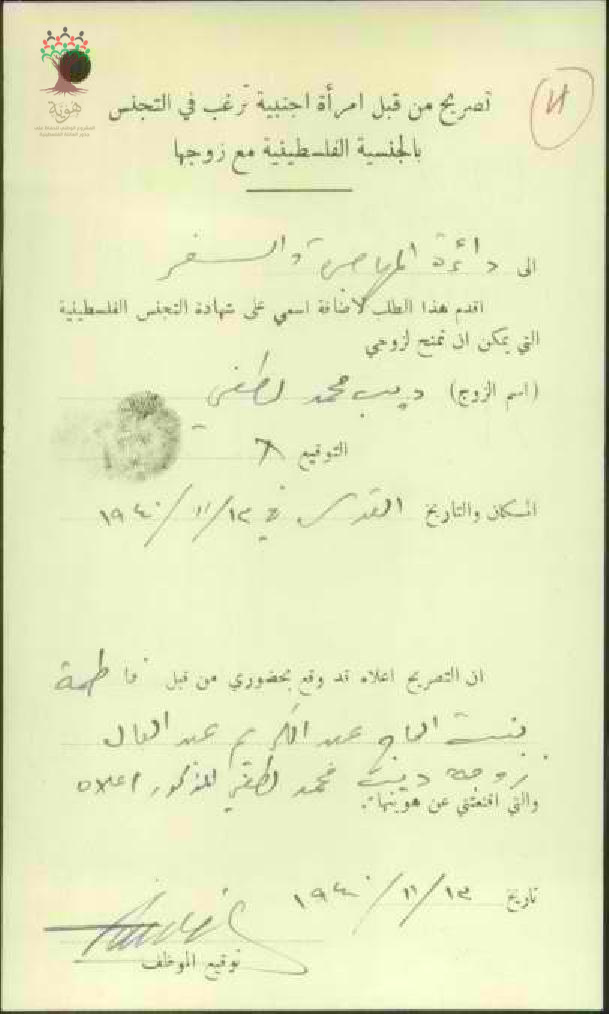 هوية
تصريح من قبل امرأة اجنبية ترغب في التجنس
بالجنسية الفلسطينية مع زوجها
الى دائرة المهاجرة والسفر
اقدم هذا الطلب لاضافة اسمي على شهادة التجنس الفلسطينية
التي يمكن ان تمنح لزوجي
(اسم الزوج) ديب محمد لطفي
التوقيع
المكان والتاريخ القدس في ١٣/١١/١٩٤٠
ان التصريح اعلاه قد وقع بحضوري من قبل فاطمة
بنت الحاج عبد الكريم عبد العال
زوجة ديب محمد لطفي المذكور اعلاه
والتي اقنعتني عن هويتها.
تاريخ ١٣/١١/١٩٤٠
توقيع الموظف